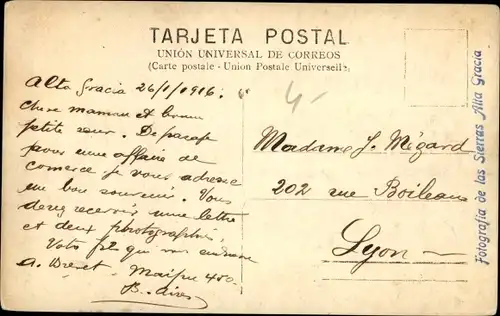 TARJETA POSTAL
UNIÓN UNIVERSAL DE CORREOS
(Carte postale - Union Postale Universelle)
Alta Gracia 26/1/1916.
chere maman et bonne
petite sœur. De passage
pour une affaire de
comerce je vous adresse
un bon souvenir. Vous
devez recevoir une lettre
et deux photographies,
Votre fz qui vous embrasse
A. Maipu 400
B. Aires
4-
Madame J. Mégard
202 rue Boileau
Lyon
Fotografía de las Sierras Alta Gracia